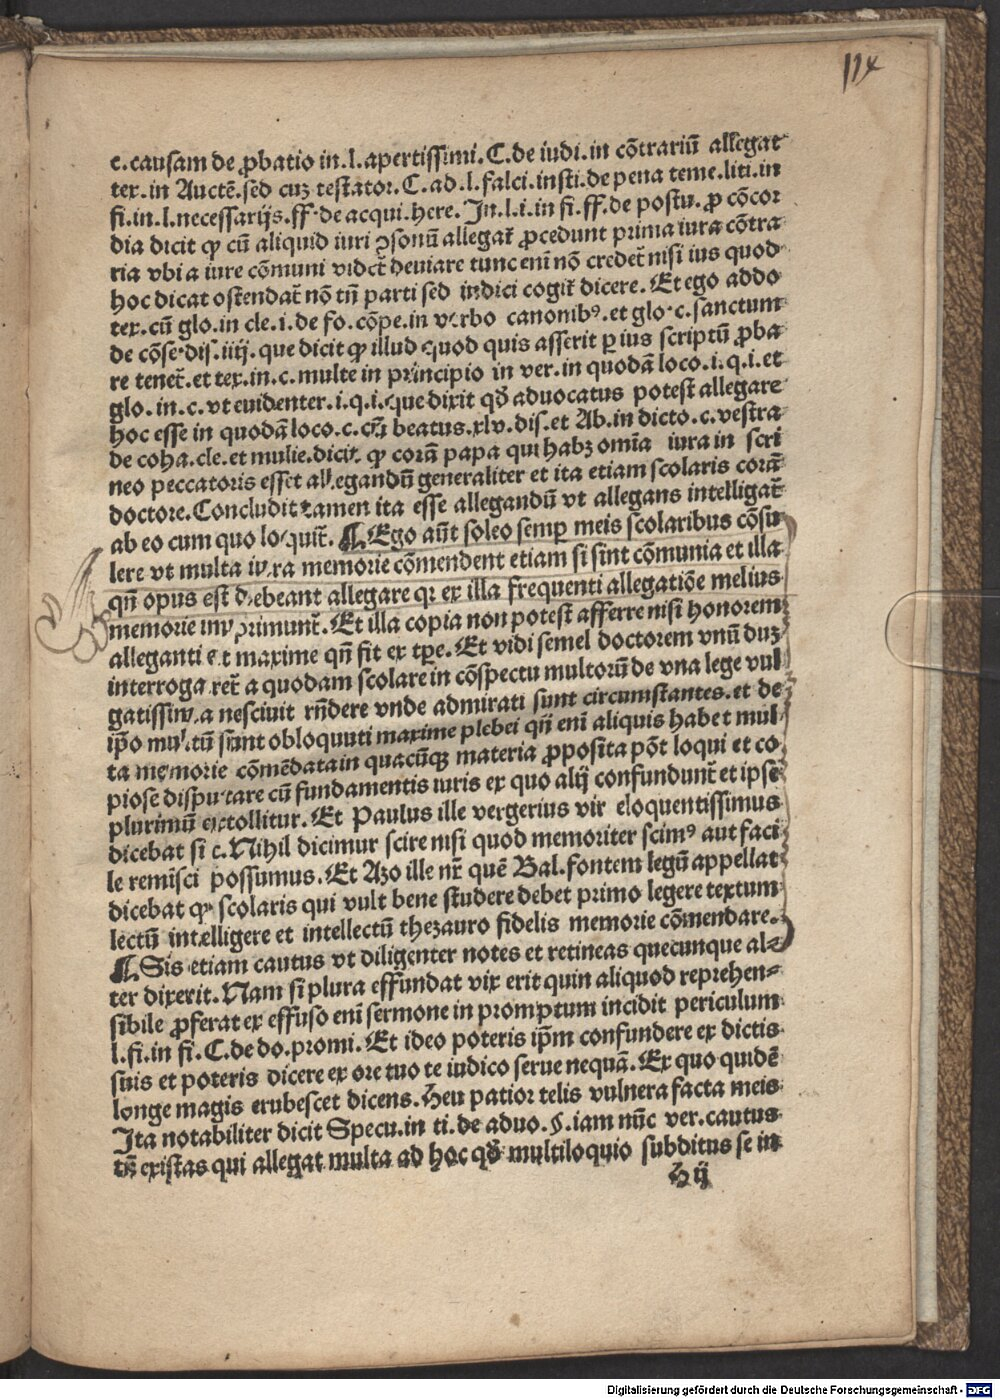 114
c. causam de ꝓbatio in .l. apertissimi. C. de iudi. in cōtrariū allegat
tex. in Auctē. sed cuz testator. C. ad .l. falci. insti. de pena teme. liti. in
fi. in .l. necessarijs. ff. de acqui. here. In .l. i. in fi. ff. de postu. ꝓ cōcor
dia dicit ꝙ cū aliquid iuri ꝯsonū allegat̄ ꝓcedunt prima iura cōtra
ria vbi a iure cōmuni videt̄ deuiare tunc eni nō credet̄ nisi ius quod
hoc dicat ostendat̄ nō tn̄ parti sed iudici cogit̄ dicere. Et ego addo
tex. cū glo. in cle. i. de fo. cōpe. in verbo canonibꝰ. et glo. c. sanctum
de cōse. dis. iiij. que dicit ꝙ illud quod quis asserit ꝑ ius scriptū ꝓba
re tenet̄. et tex. in .c. multe in principio in ver. in quodā loco .i. q. i. et
glo. in .c. vt euidenter. i. q. i. que dixit qd̄ aduocatus potest allegare
hoc esse in quodā loco .c. cū beatus. xlv. dis. et Ab. in dicto .c. vestra
de coha. cle. et mulie. dicit ꝙ corā papa qui habꝫ om̄ia iura in scri
neo peccatoris esset allegandū generaliter et ita etiam scolaris corā
doctore. Concludit tamen ita esse allegandū vt allegans intelligat̄
ab eo cum quo loquit̄. ¶ Ego aūt soleo semꝑ meis scolaribus cōsu
lere vt multa iura memorie cōmendent etiam si sint cōmunia et illa
qn̄ opus est debeant allegare qꝛ ex illa frequenti allegatiōe melius
memorie imprimunt̄. Et illa copia non potest afferre nisi honorem
alleganti et maxime qn̄ fit ex tp̄e. Et vidi semel doctorem vnū duz
interrogaret̄ a quodam scolare in cōspectu multorū de vna lege vul
gatissima nesciuit rn̄dere vnde admirati sunt circumstantes. et de
ip̄o multū sunt obloquuti maxime plebei qn̄ eni aliquis habet mul
ta memorie cōmēdata in quacūqꝫ materia ꝓposita pōt loqui et co
piose disputare cū fundamentis iuris ex quo alij confundunt̄ et ipse
plurimū extollitur. Et Paulus ille vergerius vir eloquentissimus
dicebat si c. Nihil dicimur scire nisi quod memoriter scimꝰ aut faci
le remīsci possumus. Et Azo ille nr̄ quē Bal. fontem legū appellat
dicebat ꝙ scolaris qui vult bene studere debet primo legere textum
lectū intelligere et intellectū thezauro fidelis memorie cōmendare.
¶ Sis etiam cautus vt diligenter notes et retineas quecunque al⸗
ter dixerit. Nam si plura effundat vix erit quin aliquod reprehen⸗
sibile ꝓferat ex effuso eni sermone in promptum incidit periculum
l. fi. in fi. C. de do. promi. Et ideo poteris ip̄m confundere ex dictis
suis et poteris dicere ex ore tuo te iudico serue nequā. Ex quo quidē
longe magis erubescet dicens. Heu patior telis vulnera facta meis
Ita notabiliter dicit Specu. in ti. de aduo. §. iam nūc ver. cautus
tn̄ existas qui allegat multa ad hoc qd̄ multiloquio subditus se in
H ij
Digitalisierung gefördert durch die Deutsche Forschungsgemeinschaft - DFG